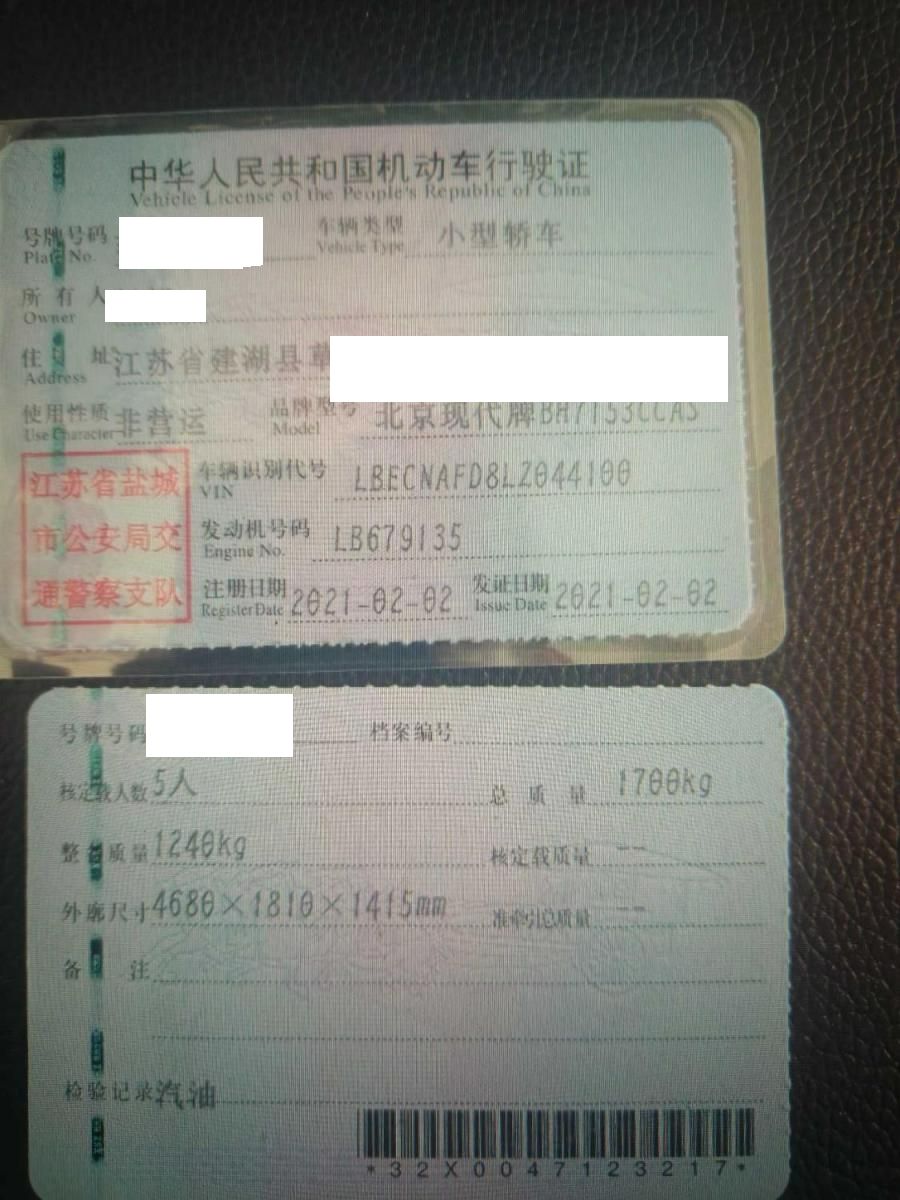 中华人民共和国机动车行驶证
Vehicle License of the People's Republic of China
号牌号码 车辆类型 小型轿车
Plate No. Vehicle Type
所有人
Owner
住址 江苏省建湖县
Address
使用性质 非营运 品牌型号 北京现代牌BH7153CCAS
Use Character Model
江苏省盐城
市公安局交
通警察支队
车辆识别代号 LBECNAFD8LZ044100
VIN
发动机号码 LB679135
Engine No.
注册日期 2021-02-02 发证日期 2021-02-02
Register Date Issue Date
号牌号码 档案编号
核定载人数 5人 总质量 1700kg
整备质量 1240kg 核定载质量 --
外廓尺寸 4680×1810×1415mm 准牵引总质量 --
备注
检验记录 汽油
*32X0047123217*